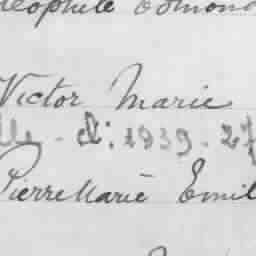 éophile Edmond
Victor Marie
d: 1939. 27
Pierre Marie Emil